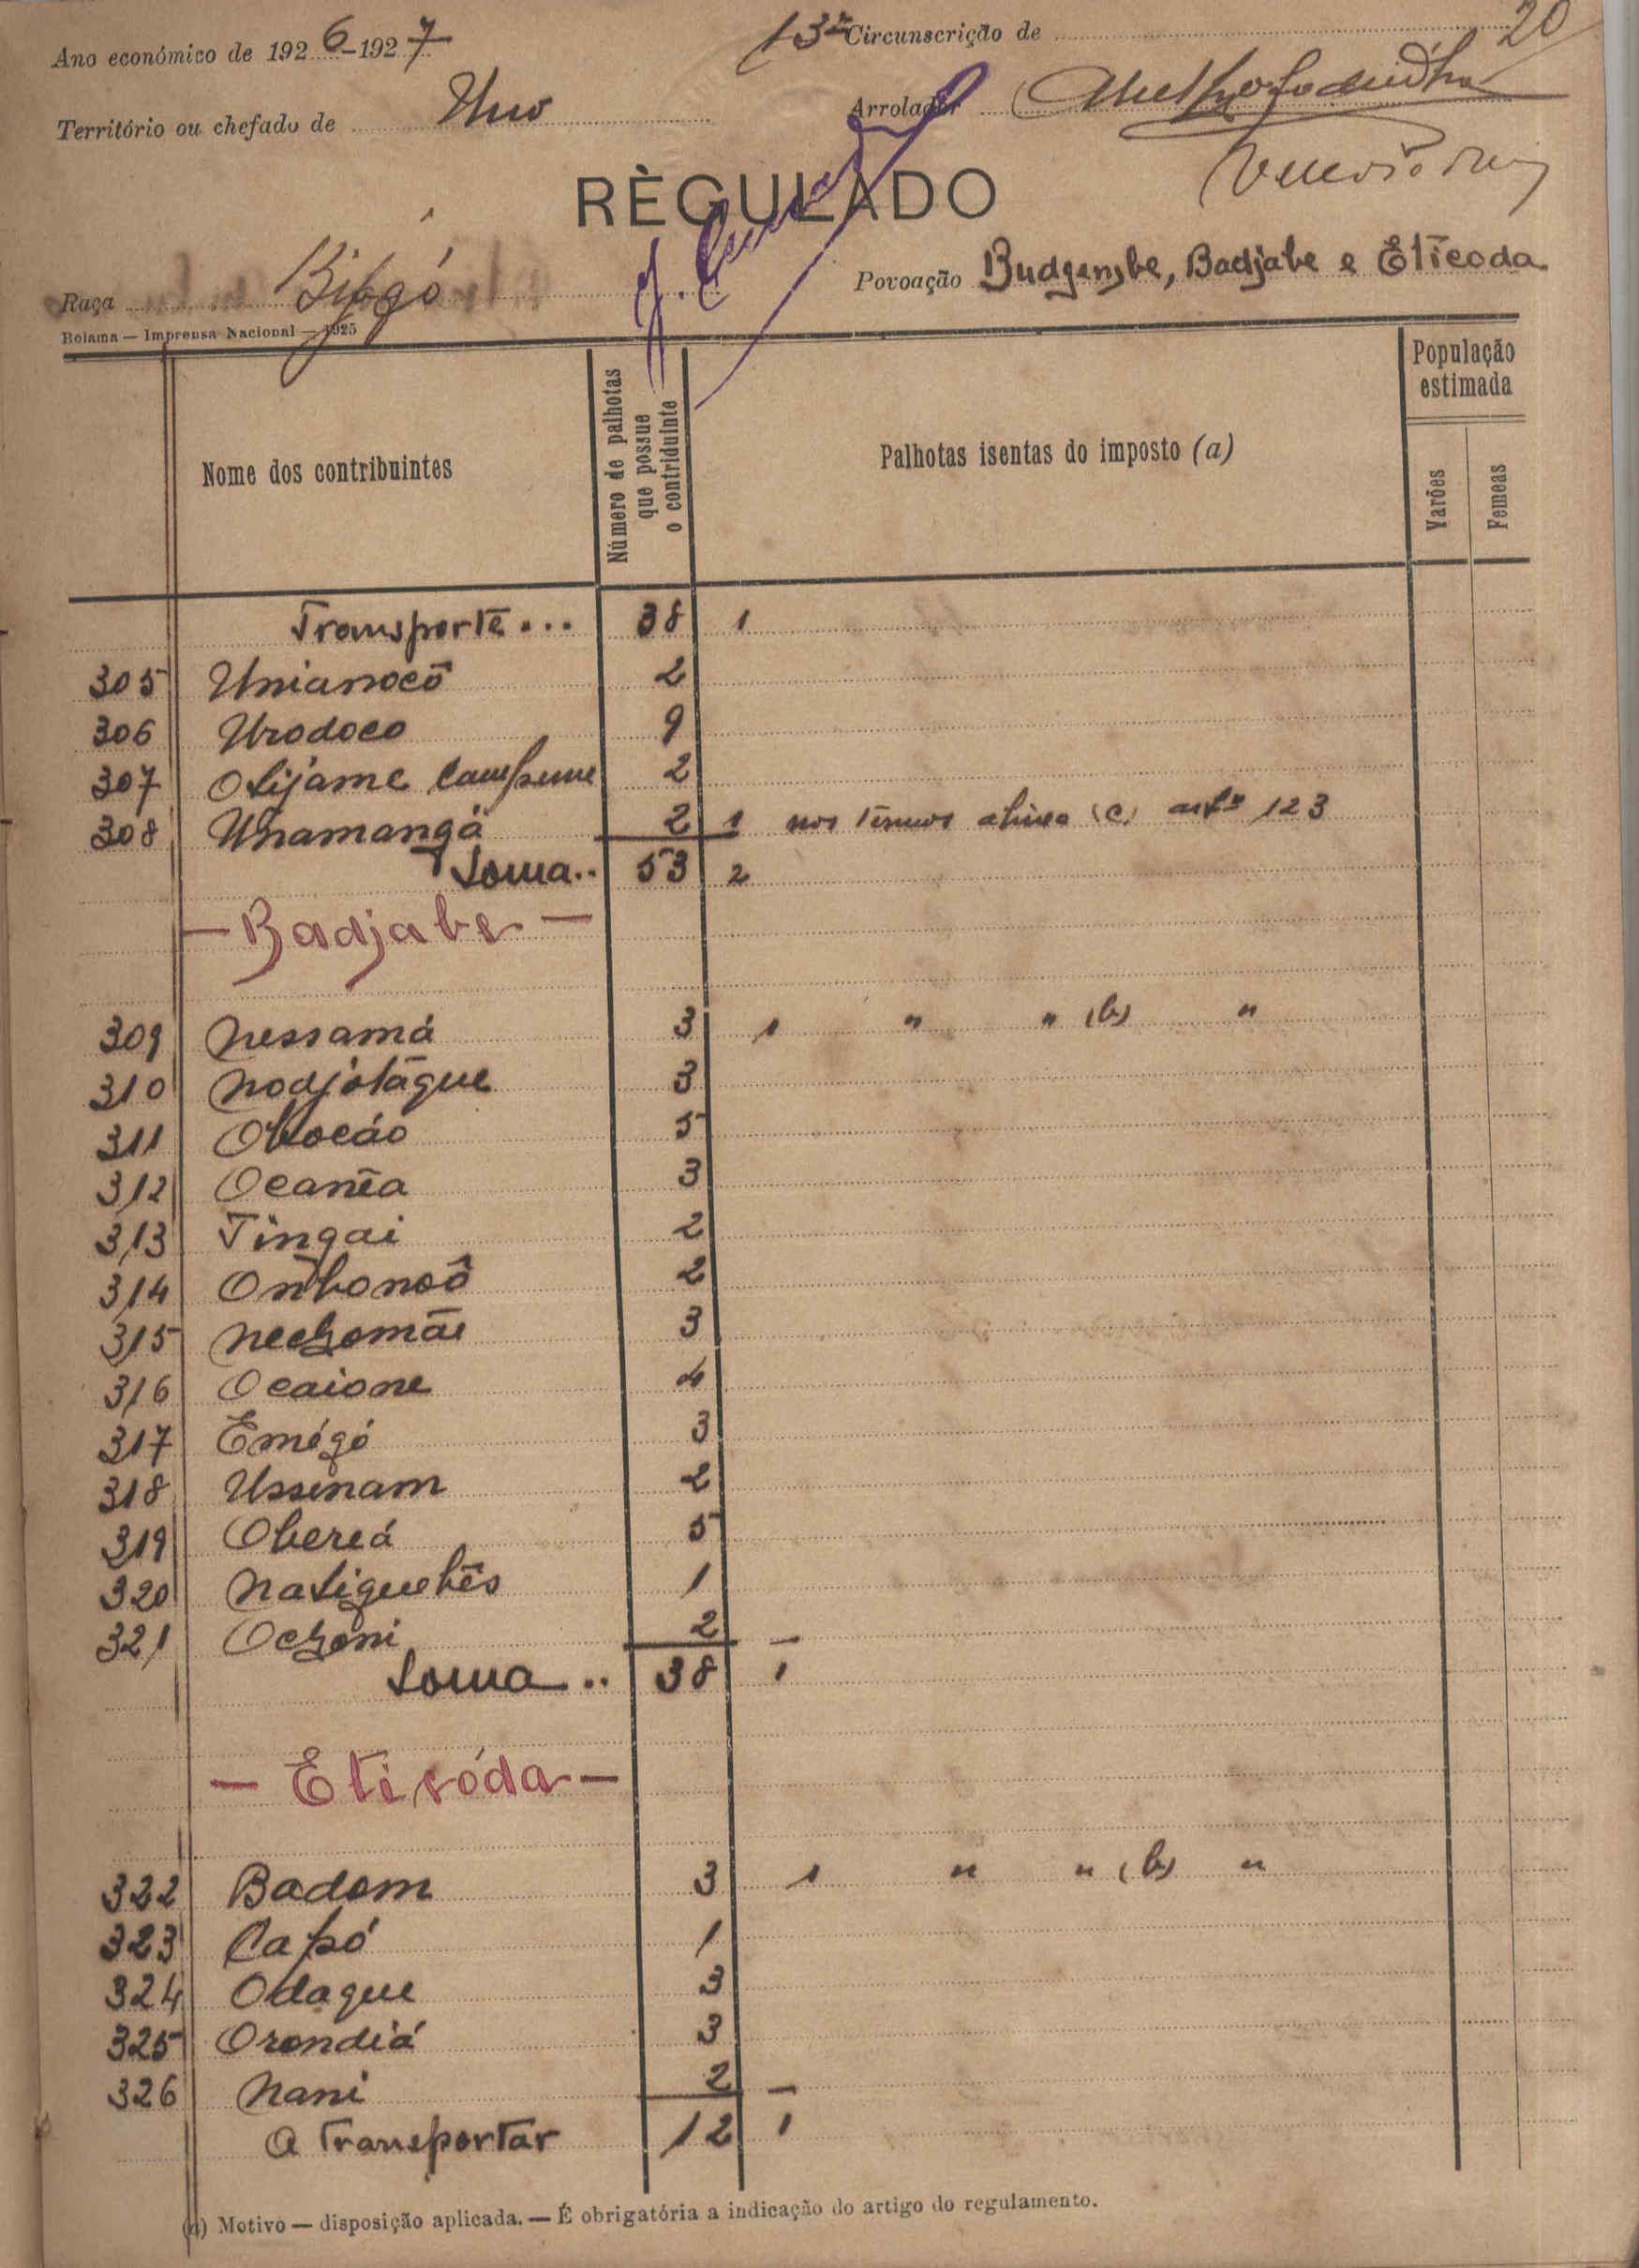 20
Ano económico de 1926-1927
13ª Circunscrição de
Território ou chefado de Uno
Arrolador
RÈGULADO
Raça Bijagó
Povoação Budjensbe, Badjabe e Eticoda
Bolama — Imprensa Nacional — 1925
Nome dos contribuintes
Número de palhotas que possue o contriduinte
Palhotas isentas do imposto (a)
População estimada
Varões
Femeas
Transporte... 38 1
305 Unianocô 2
306 Urodoco 9
307 Otijame Campune 2
308 Unamangá 2 1 nos termos alinea (c) artº 123
Soma.. 53 2
— Badjabe —
309 Nessamá 3 1 " " (b) "
310 Nodjotãque 3
311 Obocáo 5
312 Ocanêa 3
313 Tingai 2
314 Onbonoô 2
315 Nechomãe 3
316 Ocaione 4
317 Emégó 3
318 Ussenam 2
319 Obereá 5
320 Natiguebês 1
321 Ochoni 2 —
Soma.. 38 1
— Eticóda —
322 Badom 3 1 " " (b) "
323 Capó 1
324 Odaque 3
325 Orondiá 3
326 Nani 2 —
A Transportar 12 1
(a) Motivo — disposição aplicada. — É obrigatória a indicação do artigo do regulamento.